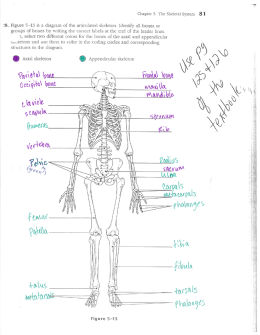 Chapter 5 The Skeletal System 81
Figure 5–13 is a diagram of the articulated skeleton. Identify all bones or
groups of bones by writing the correct labels at the end of the leader lines.
select two different colors for the bones of the axial and appendicular
and use them to color in the coding circles and corresponding
structures in the diagram.
Axial skeleton
Appendicular skeleton
Use pg
125 + 126
of the
textbook.
Parietal bone
frontal bone
Occipital bone
maxilla
Mandible
clavicle
scapula
sternum
Humerus
Rib
vertebra
Pelvic
Radius
sacrum
Ulna
Carpals
metacarpals
phalanges
Femur
Patella
tibia
fibula
talus
tarsals
metatarsals
Phalanges
Figure 5–13